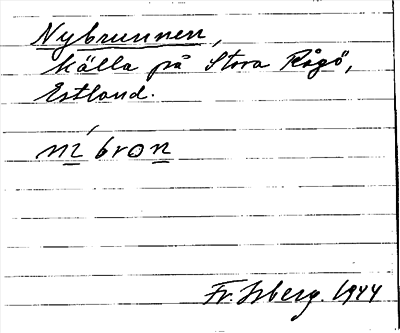 Nybrunnen,
källa på Stora Rågö,
Estland.
ní bron
Fr. Isberg. 1944